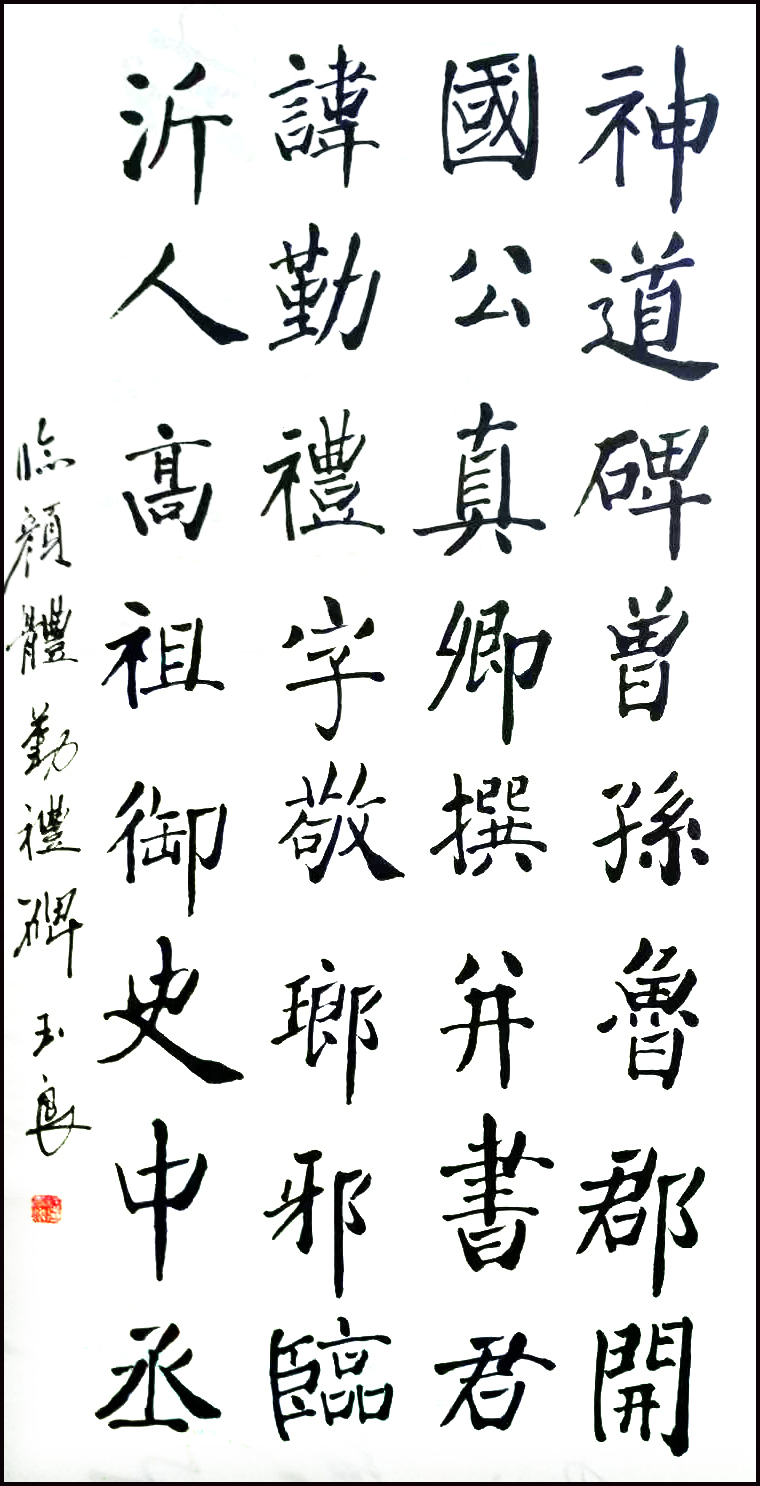 神道碑曾孫魯郡開
國公真卿撰并書君
諱勤禮字敬瑯邪臨
沂人高祖御史中丞
臨顏體勤禮碑 玉良